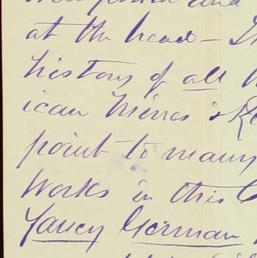 at the head —
history of all
ican Mines is
point to many
works in this
Fancy German